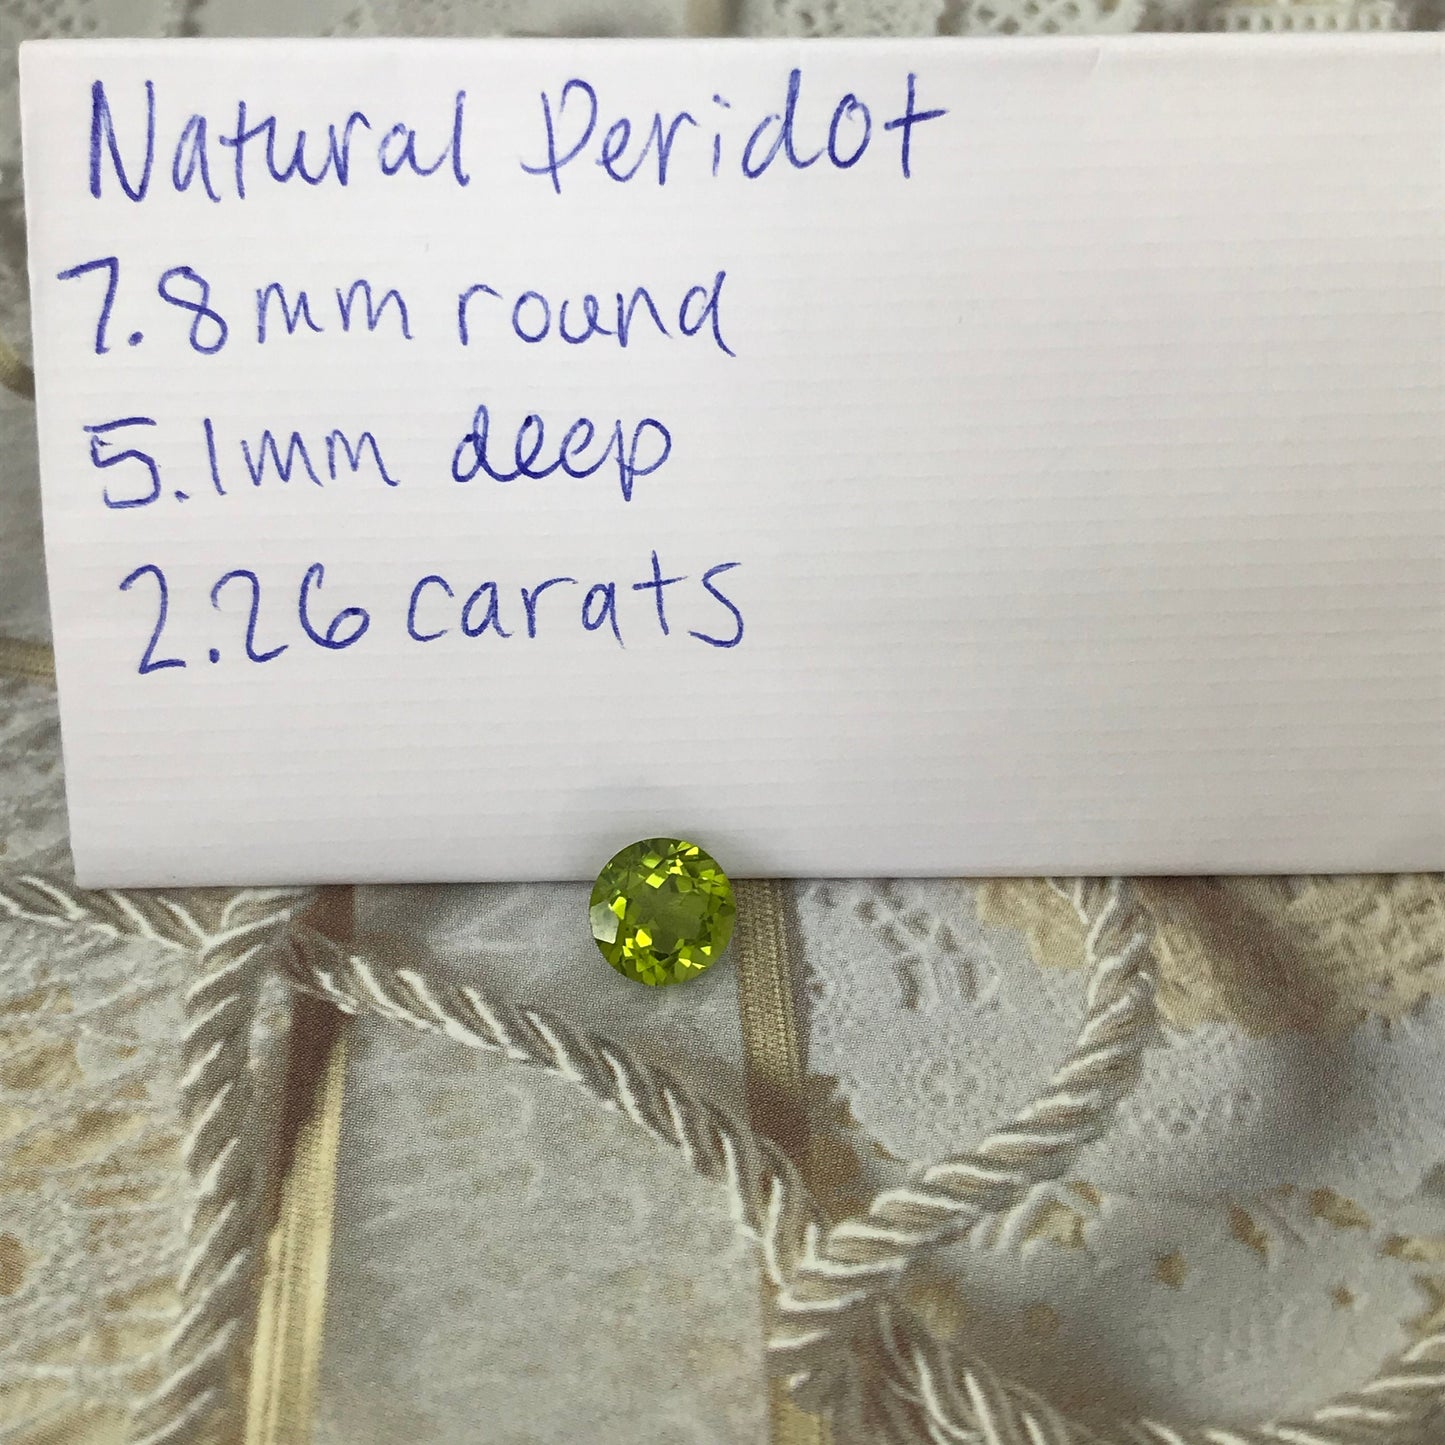 Natural Peridot
7.8mm round
5.1mm deep
2.26 carats